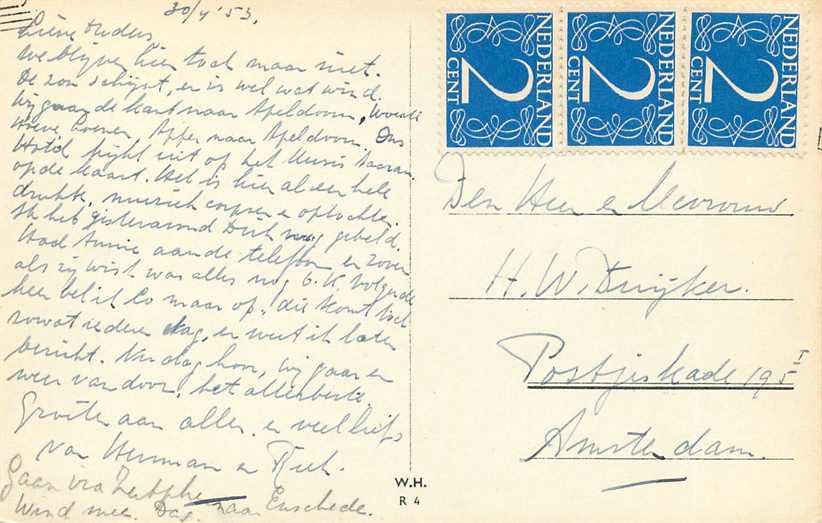 30/4 '53.
Lieve Ouders
we blijven hier toch maar niet.
De zon schijnt, er is wel wat wind.
Wij gaan de kant naar Apeldoorn,
naar Apeldoorn. Ons
Hotel kijkt uit op het
op de kaart. Het is hier al een hele
drukte, muziek corpsen en optochten.
Ik heb gisteravond nog gebeld.
Had Annie aan de telefoon en zover
als zij wist was alles nog O.K. Volgende
keer bel ik Co maar op, die komt toch
zowat iedere dag, en weet ik later
bericht. Nu dag hoor, wij gaan er
weer vandoor, het allerbeste
Groeten aan allen en veel liefs
van Herman en
Gaan via Zutphen naar Enschede.
Wind mee. Dag.
NEDERLAND
2
CENT
NEDERLAND
2
CENT
NEDERLAND
2
CENT
Den Heer en Mevrouw
H. W. Duijker.
Postjeskade 195 I
Amsterdam.
W.H.
R 4